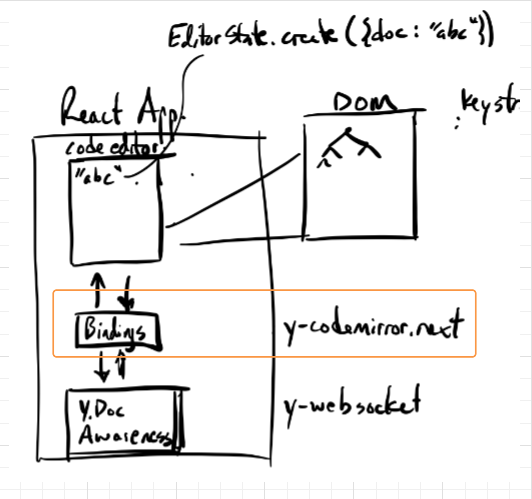 EditorState.create({doc: "abc"})
React App.
DOM
keystr
code editor
"abc"
Bindings
y-codemirror.next
Y.Doc
Awareness
y-websocket